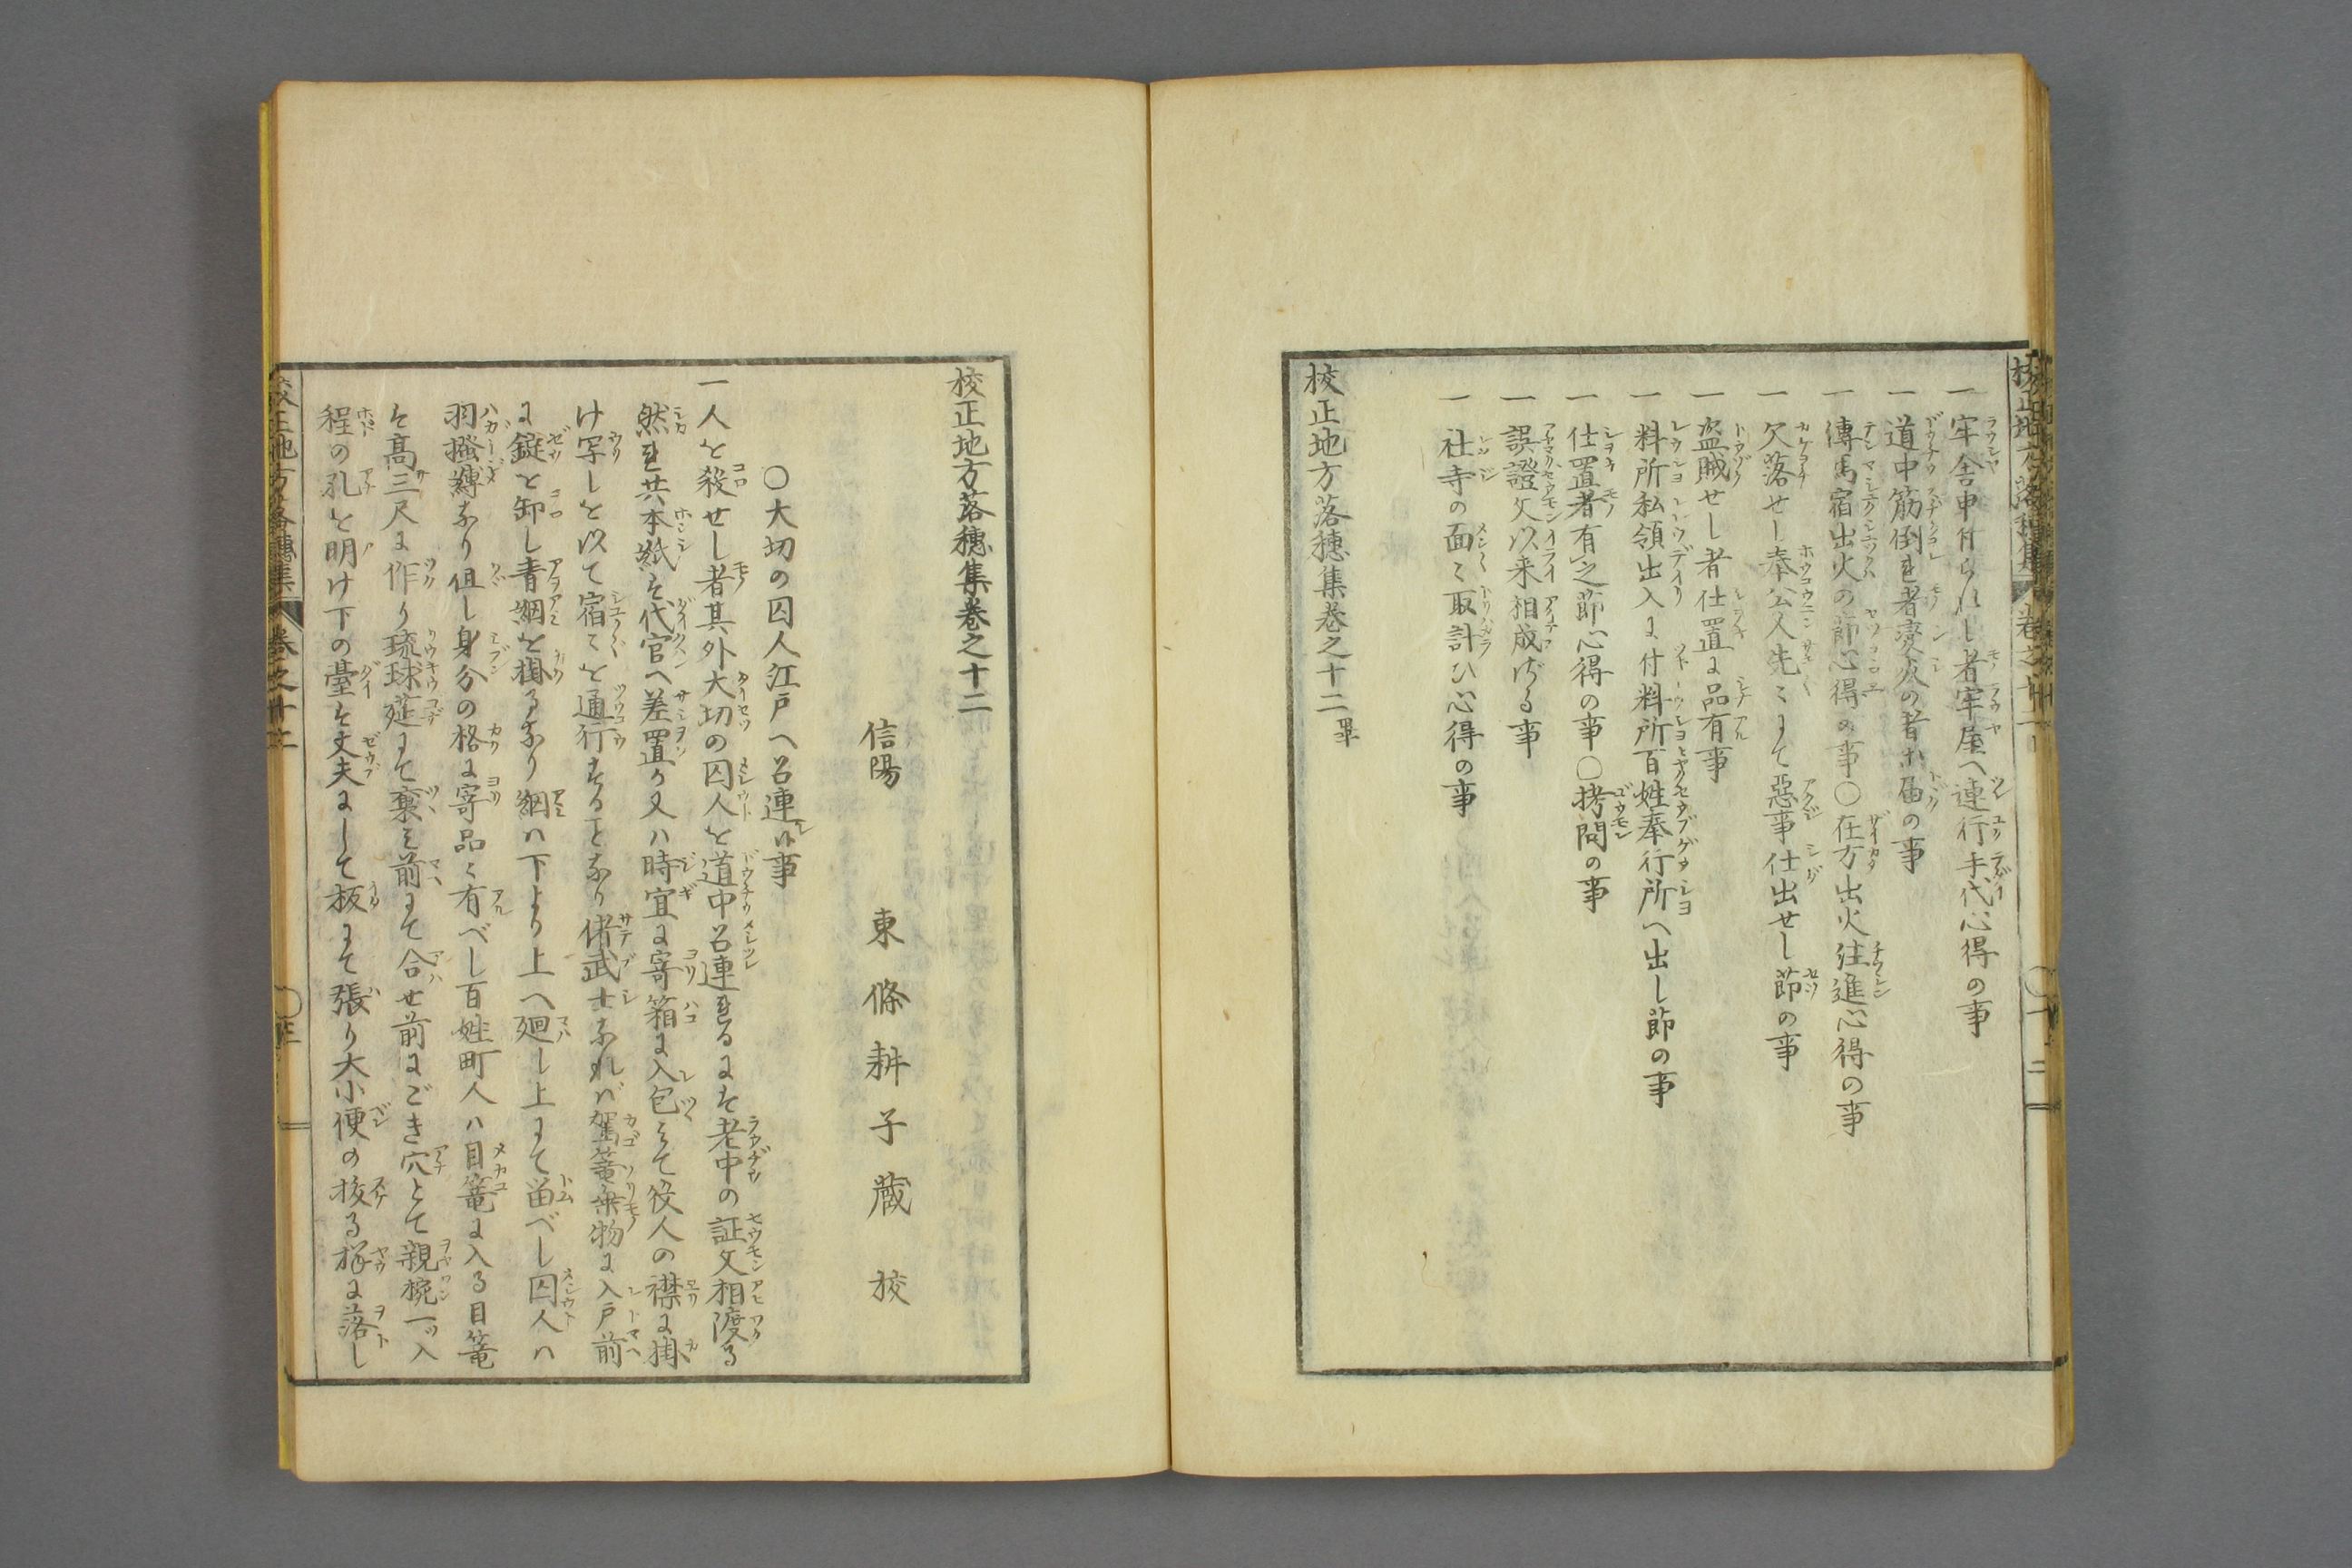 一牢舎申付られし者牢屋へ連行手代心得の事
一道中筋倒れ者変死の者等届の事
一傳馬宿出火の節心得の事〇在方出火注進心得の事
一欠落せし奉公人先々にて惡事仕出せし節の事
一盗賊せし者仕置に品有事
一料所私領出入に付料所百姓奉行所へ出し節の事
一仕置者有之節心得の事〇拷問の事
一誤證文以来相成ざる事
一社寺の面々取計ひ心得の事
校正地方落穂集巻之十二
校正地方落穂集巻之十二
信陽 東條耕子蔵校
〇大切の囚人江戸へ召連候事
一人を殺せし者其外大切の囚人を道中召連るゝには老中の証文相渡る
然れ共本紙は代官へ差置か又ハ時宜に寄箱に入包みて役人の襟に掛
け写しを以て宿々を通行することなり偖武士なれバ駕籠乗物に入戸前
に錠を卸し青網を掛るなり網ハ下より上へ廻し上にて留べし囚人ハ
羽掻縛なり但し身分の格に寄品々有べし百姓町人ハ目篭に入る目篭
は高三尺に作り琉球莚にて裹み前にて合せ前にごき穴とて親椀一ッ入
程の孔を明け下の臺は丈夫にして板にて張り大小便の抜る様に落し
校正地方落穂集 巻之十二